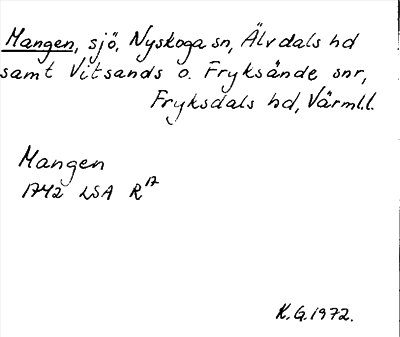 Mangen, sjö, Nyskoga sn, Älvdals hd
samt Vitsands o. Fryksände snr,
Fryksdals hd, Värml.l.
Mangen
1742 LSA R 17
K.G. 1972.